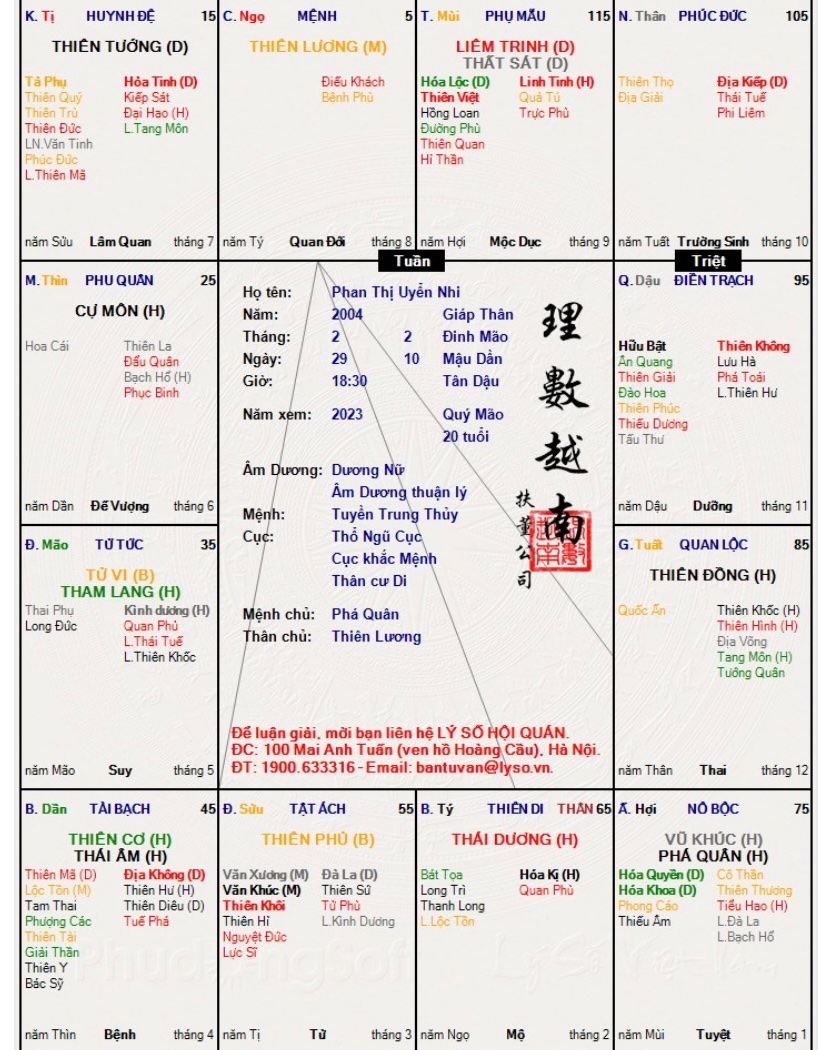 K. Tị HUYNH ĐỆ 15
THIÊN TƯỚNG (D)
Tả Phụ Hỏa Tinh (D)
Thiên Quý Kiếp Sát
Thiên Trù Đại Hao (H)
Thiên Đức L.Tang Môn
LN.Văn Tinh
Phúc Đức
L.Thiên Mã
năm Sửu Lâm Quan tháng 7
C. Ngọ MỆNH 5
THIÊN LƯƠNG (M)
Điếu Khách
Bệnh Phù
năm Tý Quan Đới tháng 8
T. Mùi PHỤ MẪU 115
LIÊM TRINH (D)
THẤT SÁT (D)
Hóa Lộc (D) Linh Tinh (H)
Thiên Việt Quả Tú
Hồng Loan Trực Phù
Đường Phù
Thiên Quan
Hỉ Thần
năm Hợi Mộc Dục tháng 9
N. Thân PHÚC ĐỨC 105
Thiên Thọ Địa Kiếp (D)
Địa Giải Thái Tuế
Phi Liêm
năm Tuất Trường Sinh tháng 10
Tuần
Triệt
M. Thìn PHU QUÂN 25
CỰ MÔN (H)
Hoa Cái Thiên La
Đẩu Quân
Bạch Hổ (H)
Phục Binh
năm Dần Đế Vượng tháng 6
Họ tên: Phan Thị Uyển Nhi
Năm: 2004 Giáp Thân
Tháng: 2 2 Đinh Mão
Ngày: 29 10 Mậu Dần
Giờ: 18:30 Tân Dậu
Năm xem: 2023 Quý Mão
20 tuổi
Âm Dương: Dương Nữ
Âm Dương thuận lý
Mệnh: Tuyền Trung Thủy
Cục: Thổ Ngũ Cục
Cục khắc Mệnh
Thân cư Di
Mệnh chủ: Phá Quân
Thân chủ: Thiên Lương
理數越南
扶董公司
Để luận giải, mời bạn liên hệ LÝ SỐ HỘI QUÁN.
ĐC: 100 Mai Anh Tuấn (ven hồ Hoàng Cầu), Hà Nội.
ĐT: 1900.633316 - Email: bantuvan@lyso.vn.
Q. Dậu ĐIỀN TRẠCH 95
Hữu Bật Thiên Không
Ân Quang Lưu Hà
Thiên Giải Phá Toái
Đào Hoa L.Thiên Hư
Thiên Phúc
Thiếu Dương
Tấu Thư
năm Dậu Dưỡng tháng 11
Đ. Mão TỬ TỨC 35
TỬ VI (B)
THAM LANG (H)
Thai Phụ Kình dương (H)
Long Đức Quan Phủ
L.Thái Tuế
L.Thiên Khốc
năm Mão Suy tháng 5
G. Tuất QUAN LỘC 85
THIÊN ĐỒNG (H)
Quốc Ấn Thiên Khốc (H)
Thiên Hình (H)
Địa Võng
Tang Môn (H)
Tướng Quân
năm Thân Thai tháng 12
B. Dần TÀI BẠCH 45
THIÊN CƠ (H)
THÁI ÂM (H)
Thiên Mã (D) Địa Không (D)
Lộc Tồn (M) Thiên Hư (H)
Tam Thai Thiên Diêu (D)
Phượng Các Tuế Phá
Thiên Tài
Giải Thần
Thiên Y
Bác Sỹ
năm Thìn Bệnh tháng 4
Đ. Sửu TẬT ÁCH 55
THIÊN PHỦ (B)
Văn Xương (M) Đà La (D)
Văn Khúc (M) Thiên Sứ
Thiên Khôi Tử Phù
Thiên Hỉ L.Kình Dương
Nguyệt Đức
Lực Sĩ
năm Tị Tử tháng 3
B. Tý THIÊN DI THÂN 65
THÁI DƯƠNG (H)
Bát Tọa Hóa Kị (H)
Long Trì Quan Phù
Thanh Long
L.Lộc Tồn
năm Ngọ Mộ tháng 2
Ấ. Hợi NÔ BỘC 75
VŨ KHÚC (H)
PHÁ QUÂN (H)
Hóa Quyền (D) Cô Thần
Hóa Khoa (D) Thiên Thương
Phong Cáo Tiểu Hao (H)
Thiếu Âm L.Đà La
L.Bạch Hổ
năm Mùi Tuyệt tháng 1